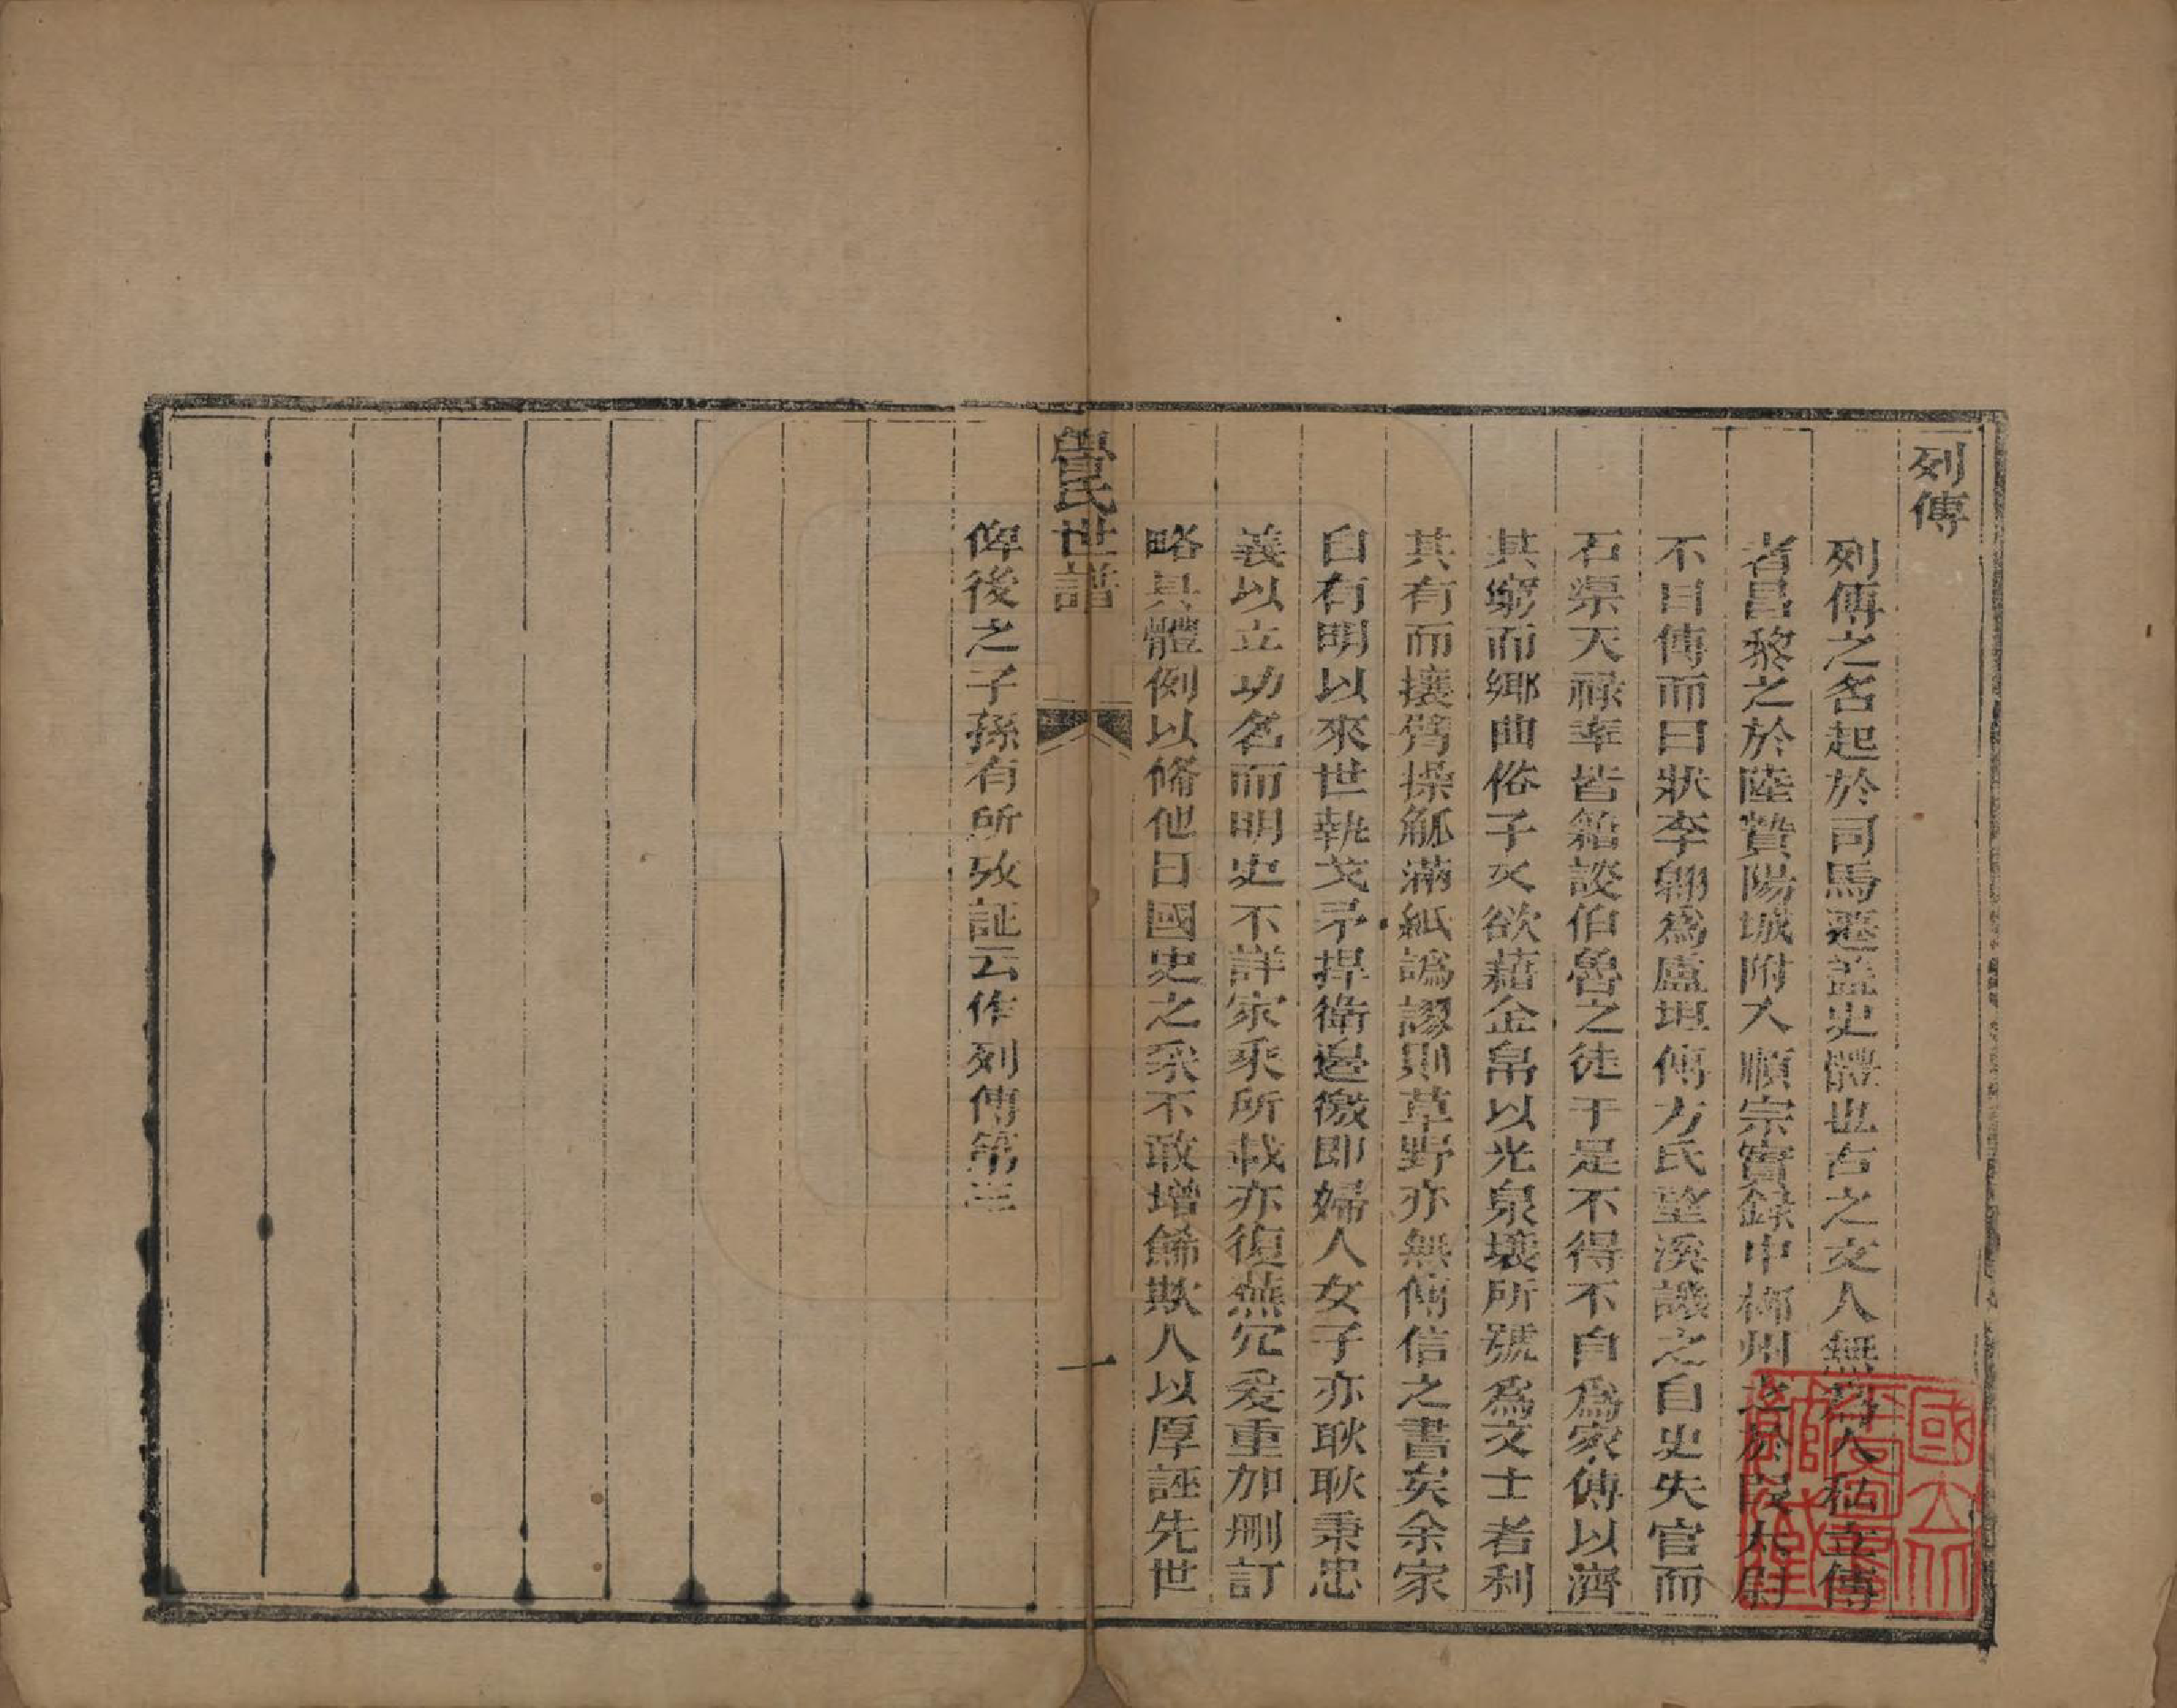 列傳
列傳之名起於司馬遷蓋史體也古之文人無為人私立傳
者昌黎之於陸贄陽城附入順宗實錄中柳州之於段太尉
不曰傳而曰狀李翱為盧坦傳方氏望溪譏之自史失官而
石渠天祿率皆籍談伯魯之徒于是不得不自為家傳以濟
其窮而鄉曲俗子又欲藉金帛以光泉壤所號為文士者利
其有而攘臂操觚滿紙譌謬則草野亦無傳信之書矣余家
自有明以來世執戈矛捍衛邊徼即婦人女子亦耿耿秉忠
義以立功名而明史不詳家乘所載亦復蕪冗爰重加刪訂
略具體例以備他日國史之采不敢增餙欺人以厚誣先世
氏世譜
一
俾後之子孫有所攷証云作列傳第三
國立